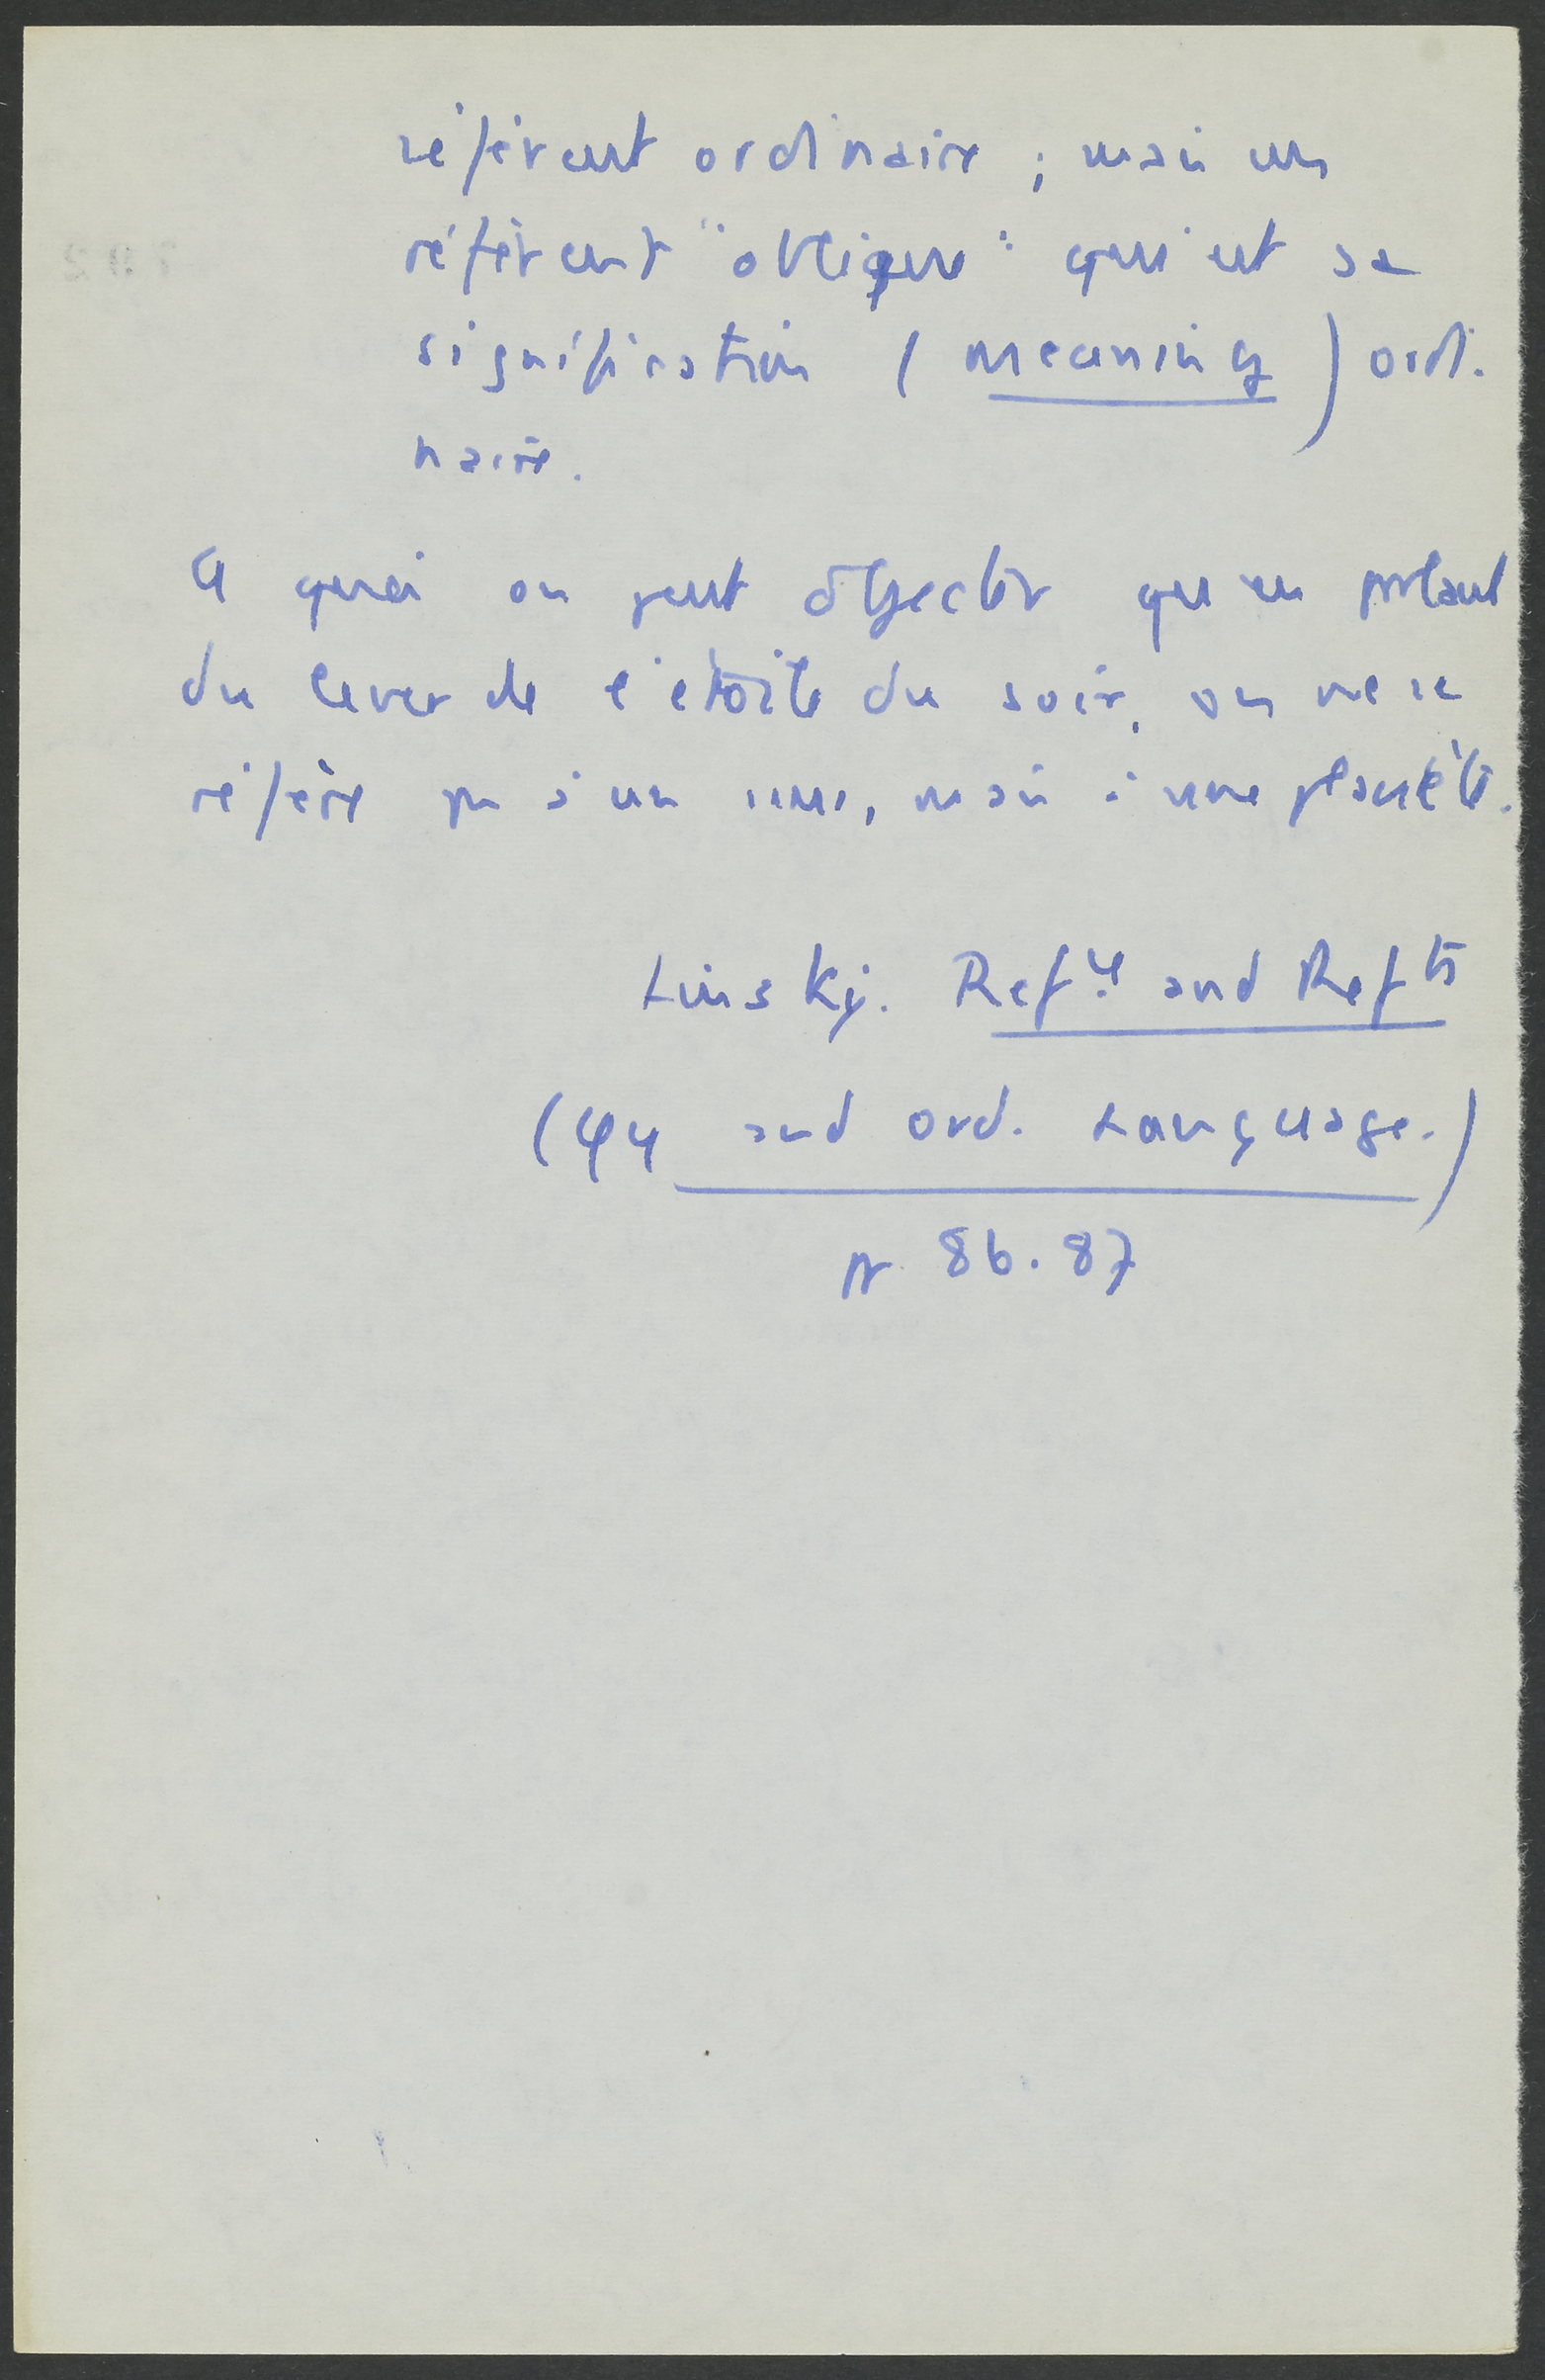 référent ordinaire ; mais un
référent "oblique" qui est sa
signification (meaning) ordi-
naire.
A quoi on peut objecter qu'en parlant
du lever de l'étoile du soir, on ne se
réfère pas à un sens, mais à une planète.
Linsky. Refce and Refts
(φy and ord. Language.)
pp 86.87